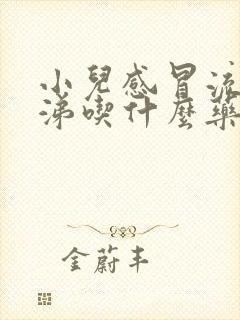 小兒感冒流
涕喫什麼藥
金蔚丰